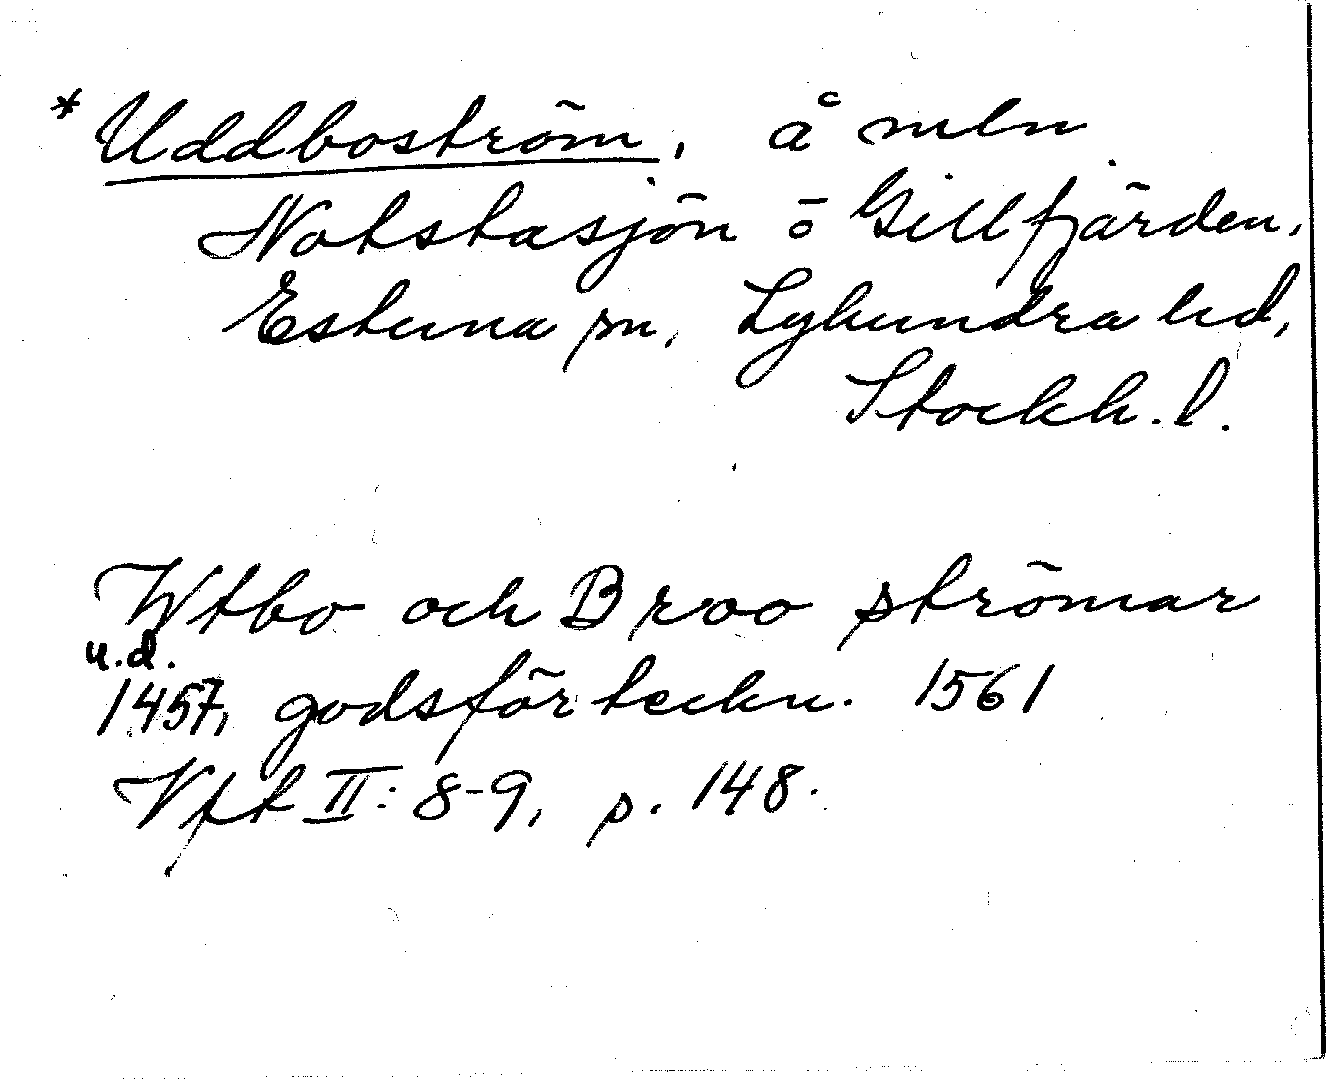 * Uddboström, å mln
Notstasjön o Gillfjärden,
Estuna sn, Lyhundra hd,
Stockh. l.
Wtbo och Broo strömar
u.d.
1457, godsförteckn. 1561
Vfk II: 8-9, p. 148.